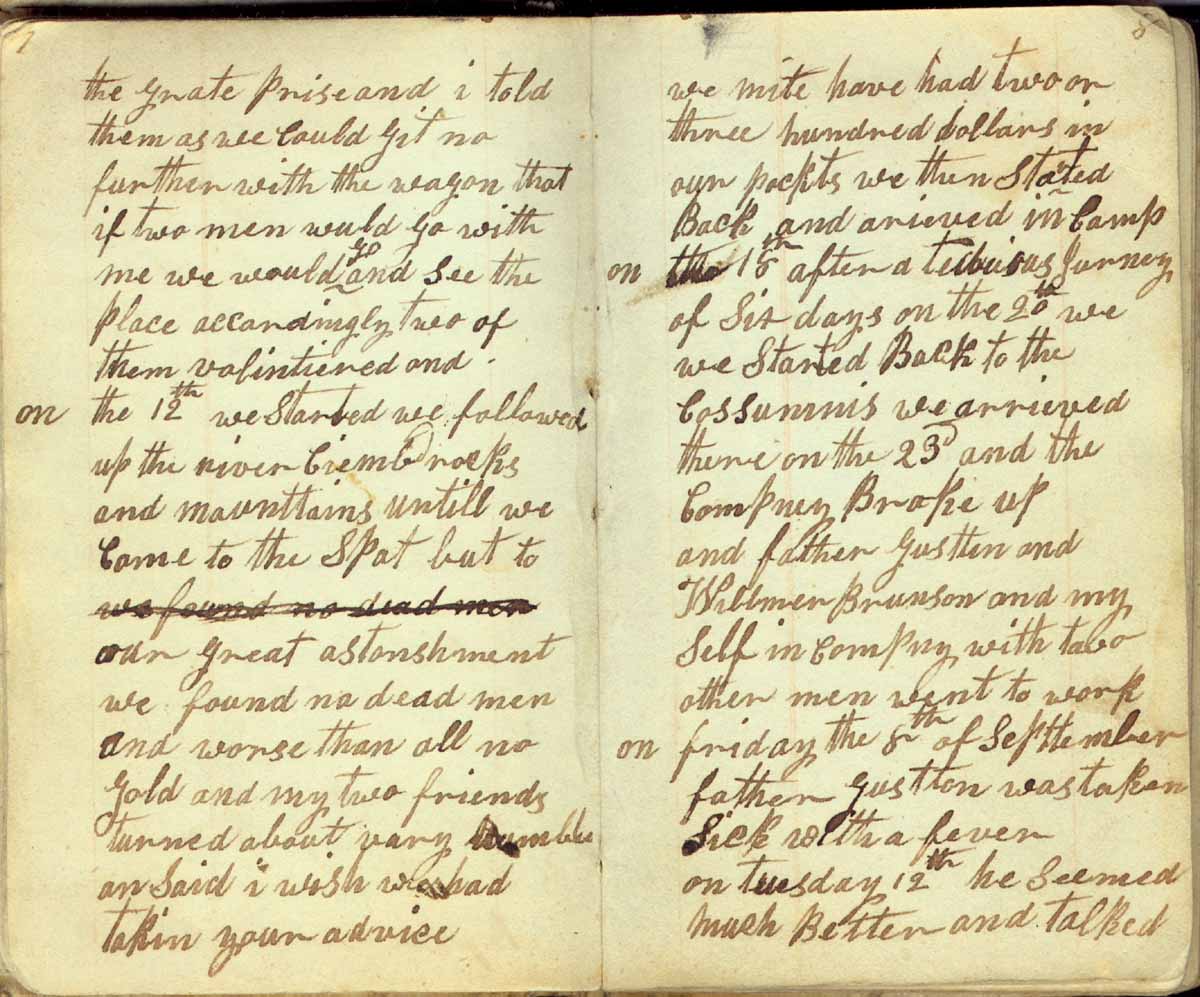 7
the grate Prise and i told
them as we Could git no
further with the wagon that
if two men wuld go with
me we would go and see the
Place accordingly two of
them volintiered and
on the 12th we Started we followed
up the river Ciemb rocks
and maunttains untill we
Came to the Spot but to
we found no dead men
our great astonshment
we found no dead men
and worse than all no
gold and my two friends
turned about vary humble
an Said i wish we had
takin your advice
8
we mite have had two or
three hundred dollars in
our pockts we then Stated
Back and arieved in Camp
on the 18th after a tedious Jurney
of Six days on the 20th we
we Started Back to the
Cossumnis we arrieved
there on the 23d and the
Compney Broke up
and father Gustten and
Willmer Brunson and my
Self in Compny with two
other men went to work
on friday the 8th of Septtember
father Gustton was taken
Sick with a fever
on tuesday 12th he Seemed
much Better and talked